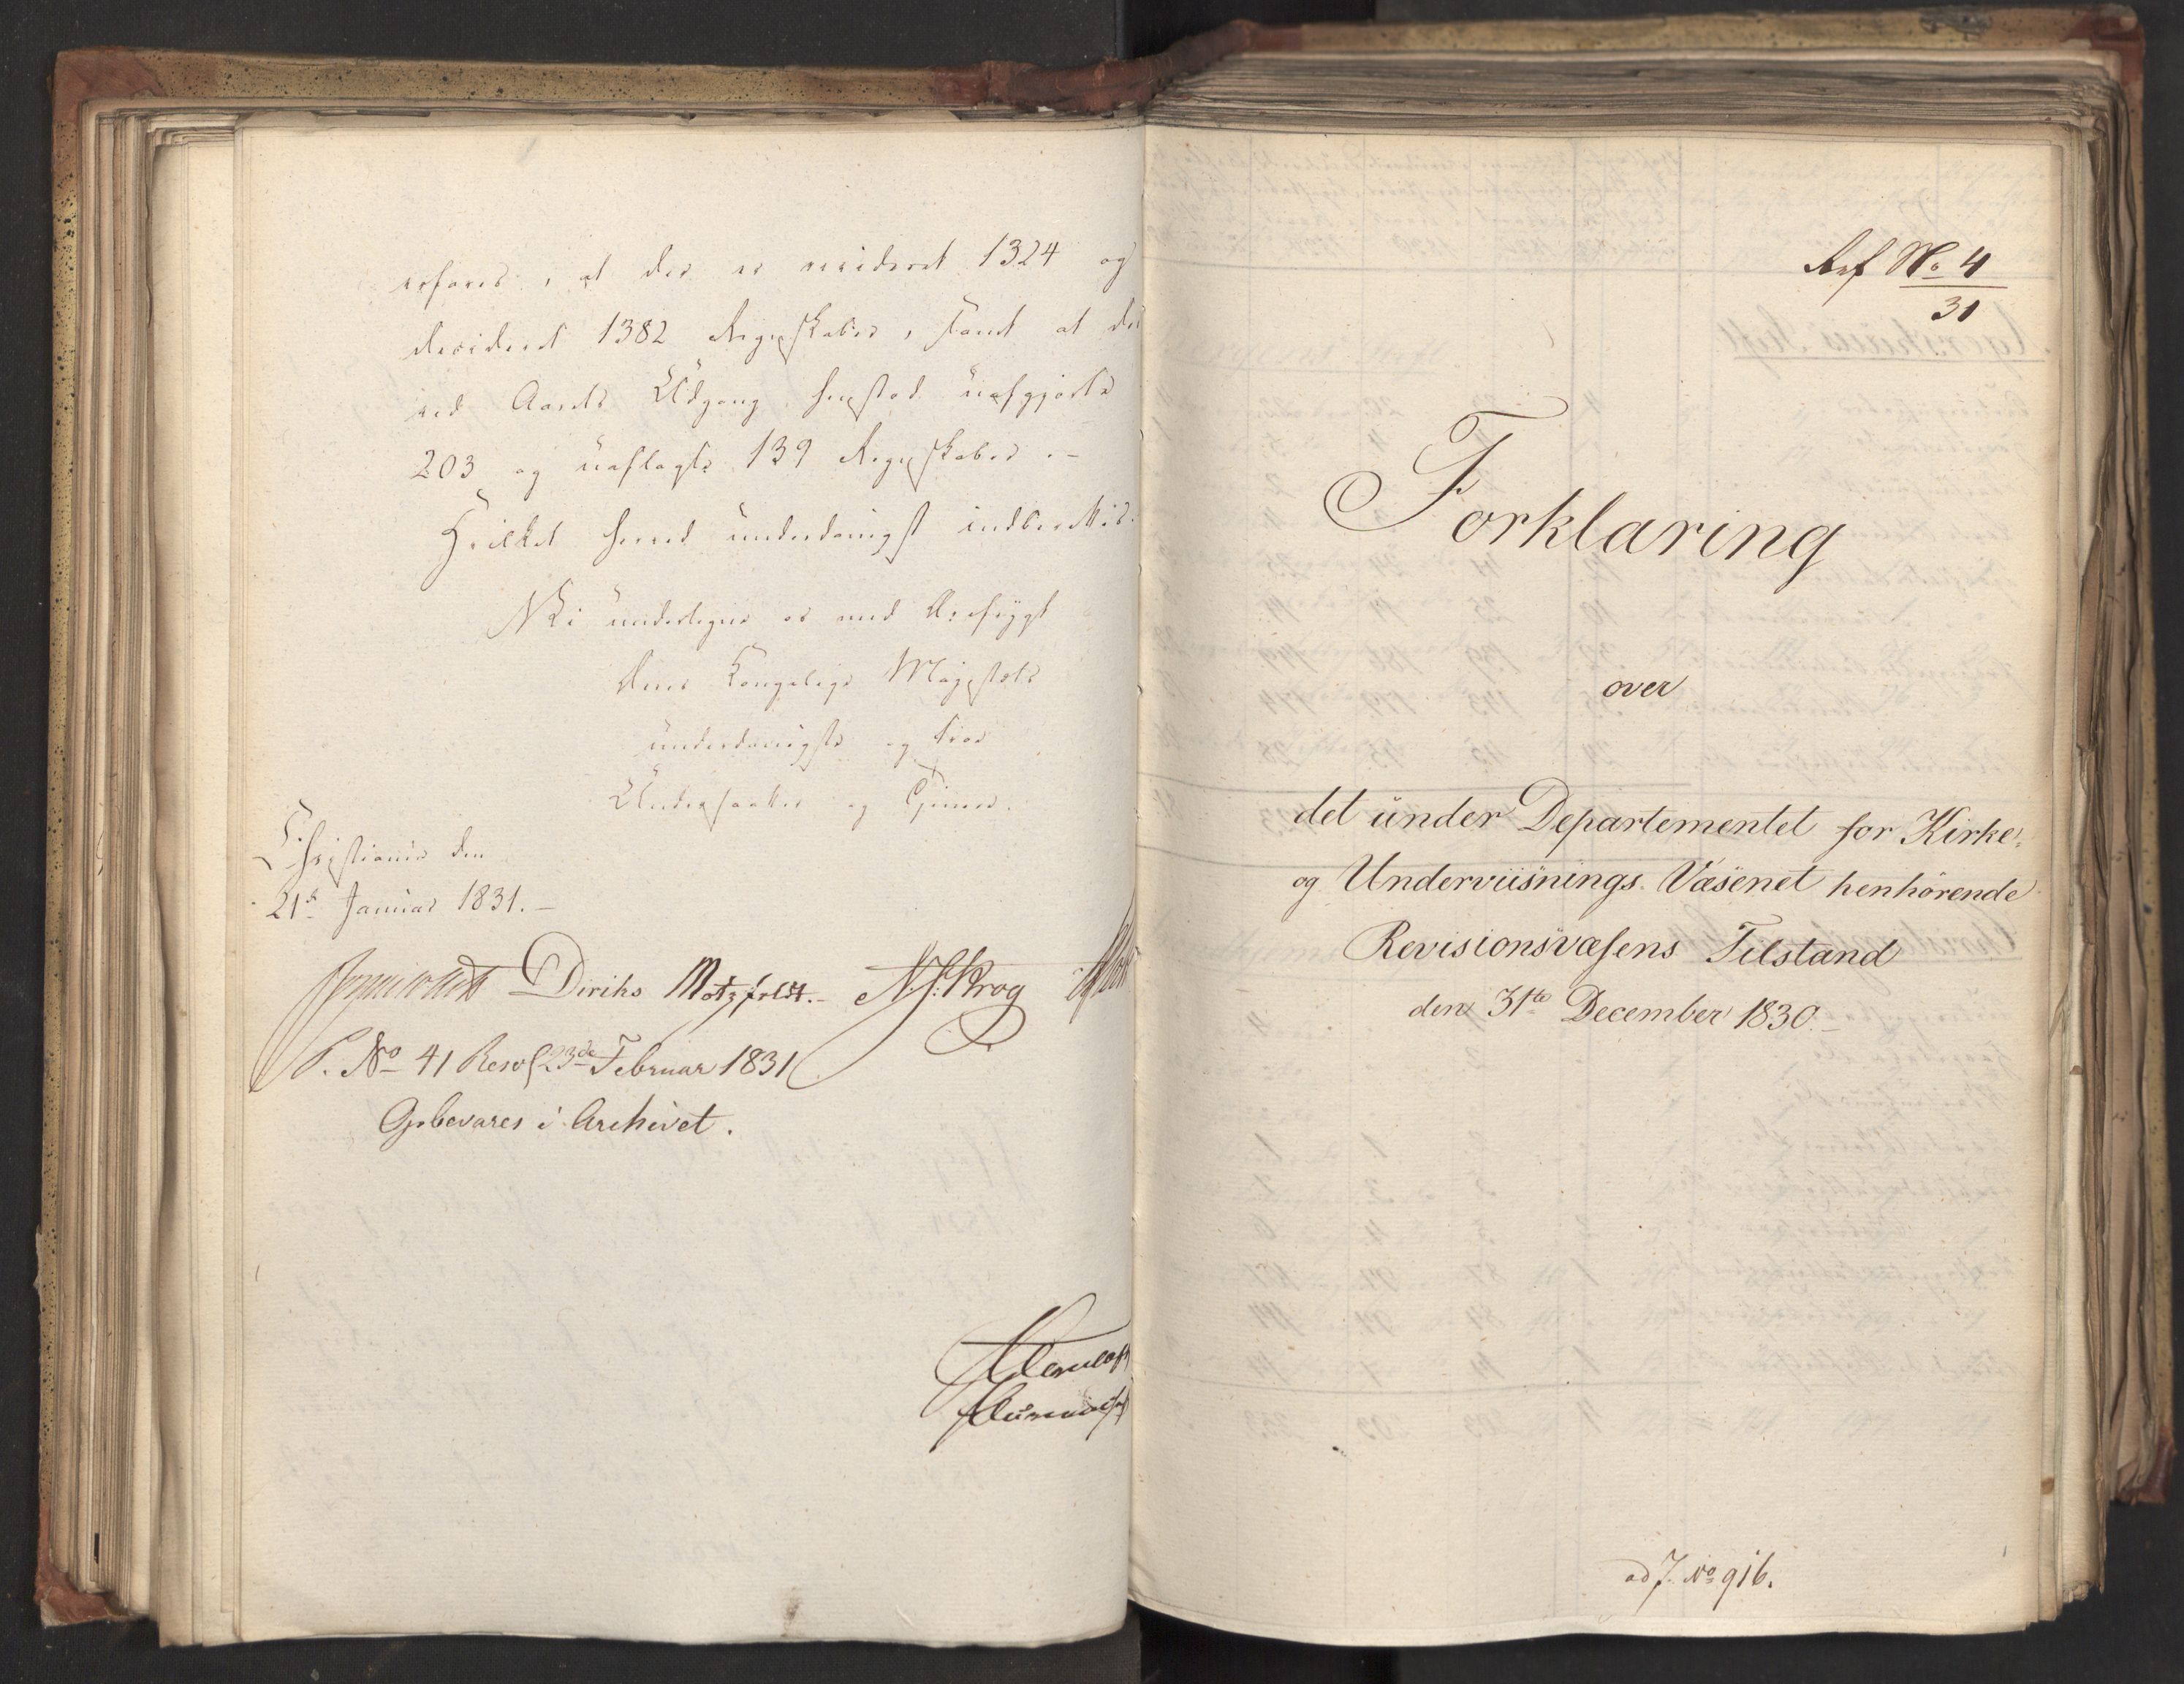 erfares, at der er revideret 1324 og
decideret 1382 Regnskaber, samt at der
ved Aarets Udgang henstod uafgjorte
203 og uaflagte 139 Regnskaber.-
Hvilket herved underdanigst indberettes.
Vi undertegne os med Ærefrygt
Deres Kongelige Majestæts
underdanigste og troe
Undersaatter og Tjenere.
Christiania den
21de Januar 1831.-
Diriks Motzfeldt.- Krog
P. No 41 Resol 23de Februar 1831
Opbevares i Archivet.
Ref No 4
31
Forklaring
over
det under Departementet for Kirke-
og Underviisnings-Væsenet henhörende
Revisionsvæsens Tilstand
den 31te December 1830.-
ad J. No 916.